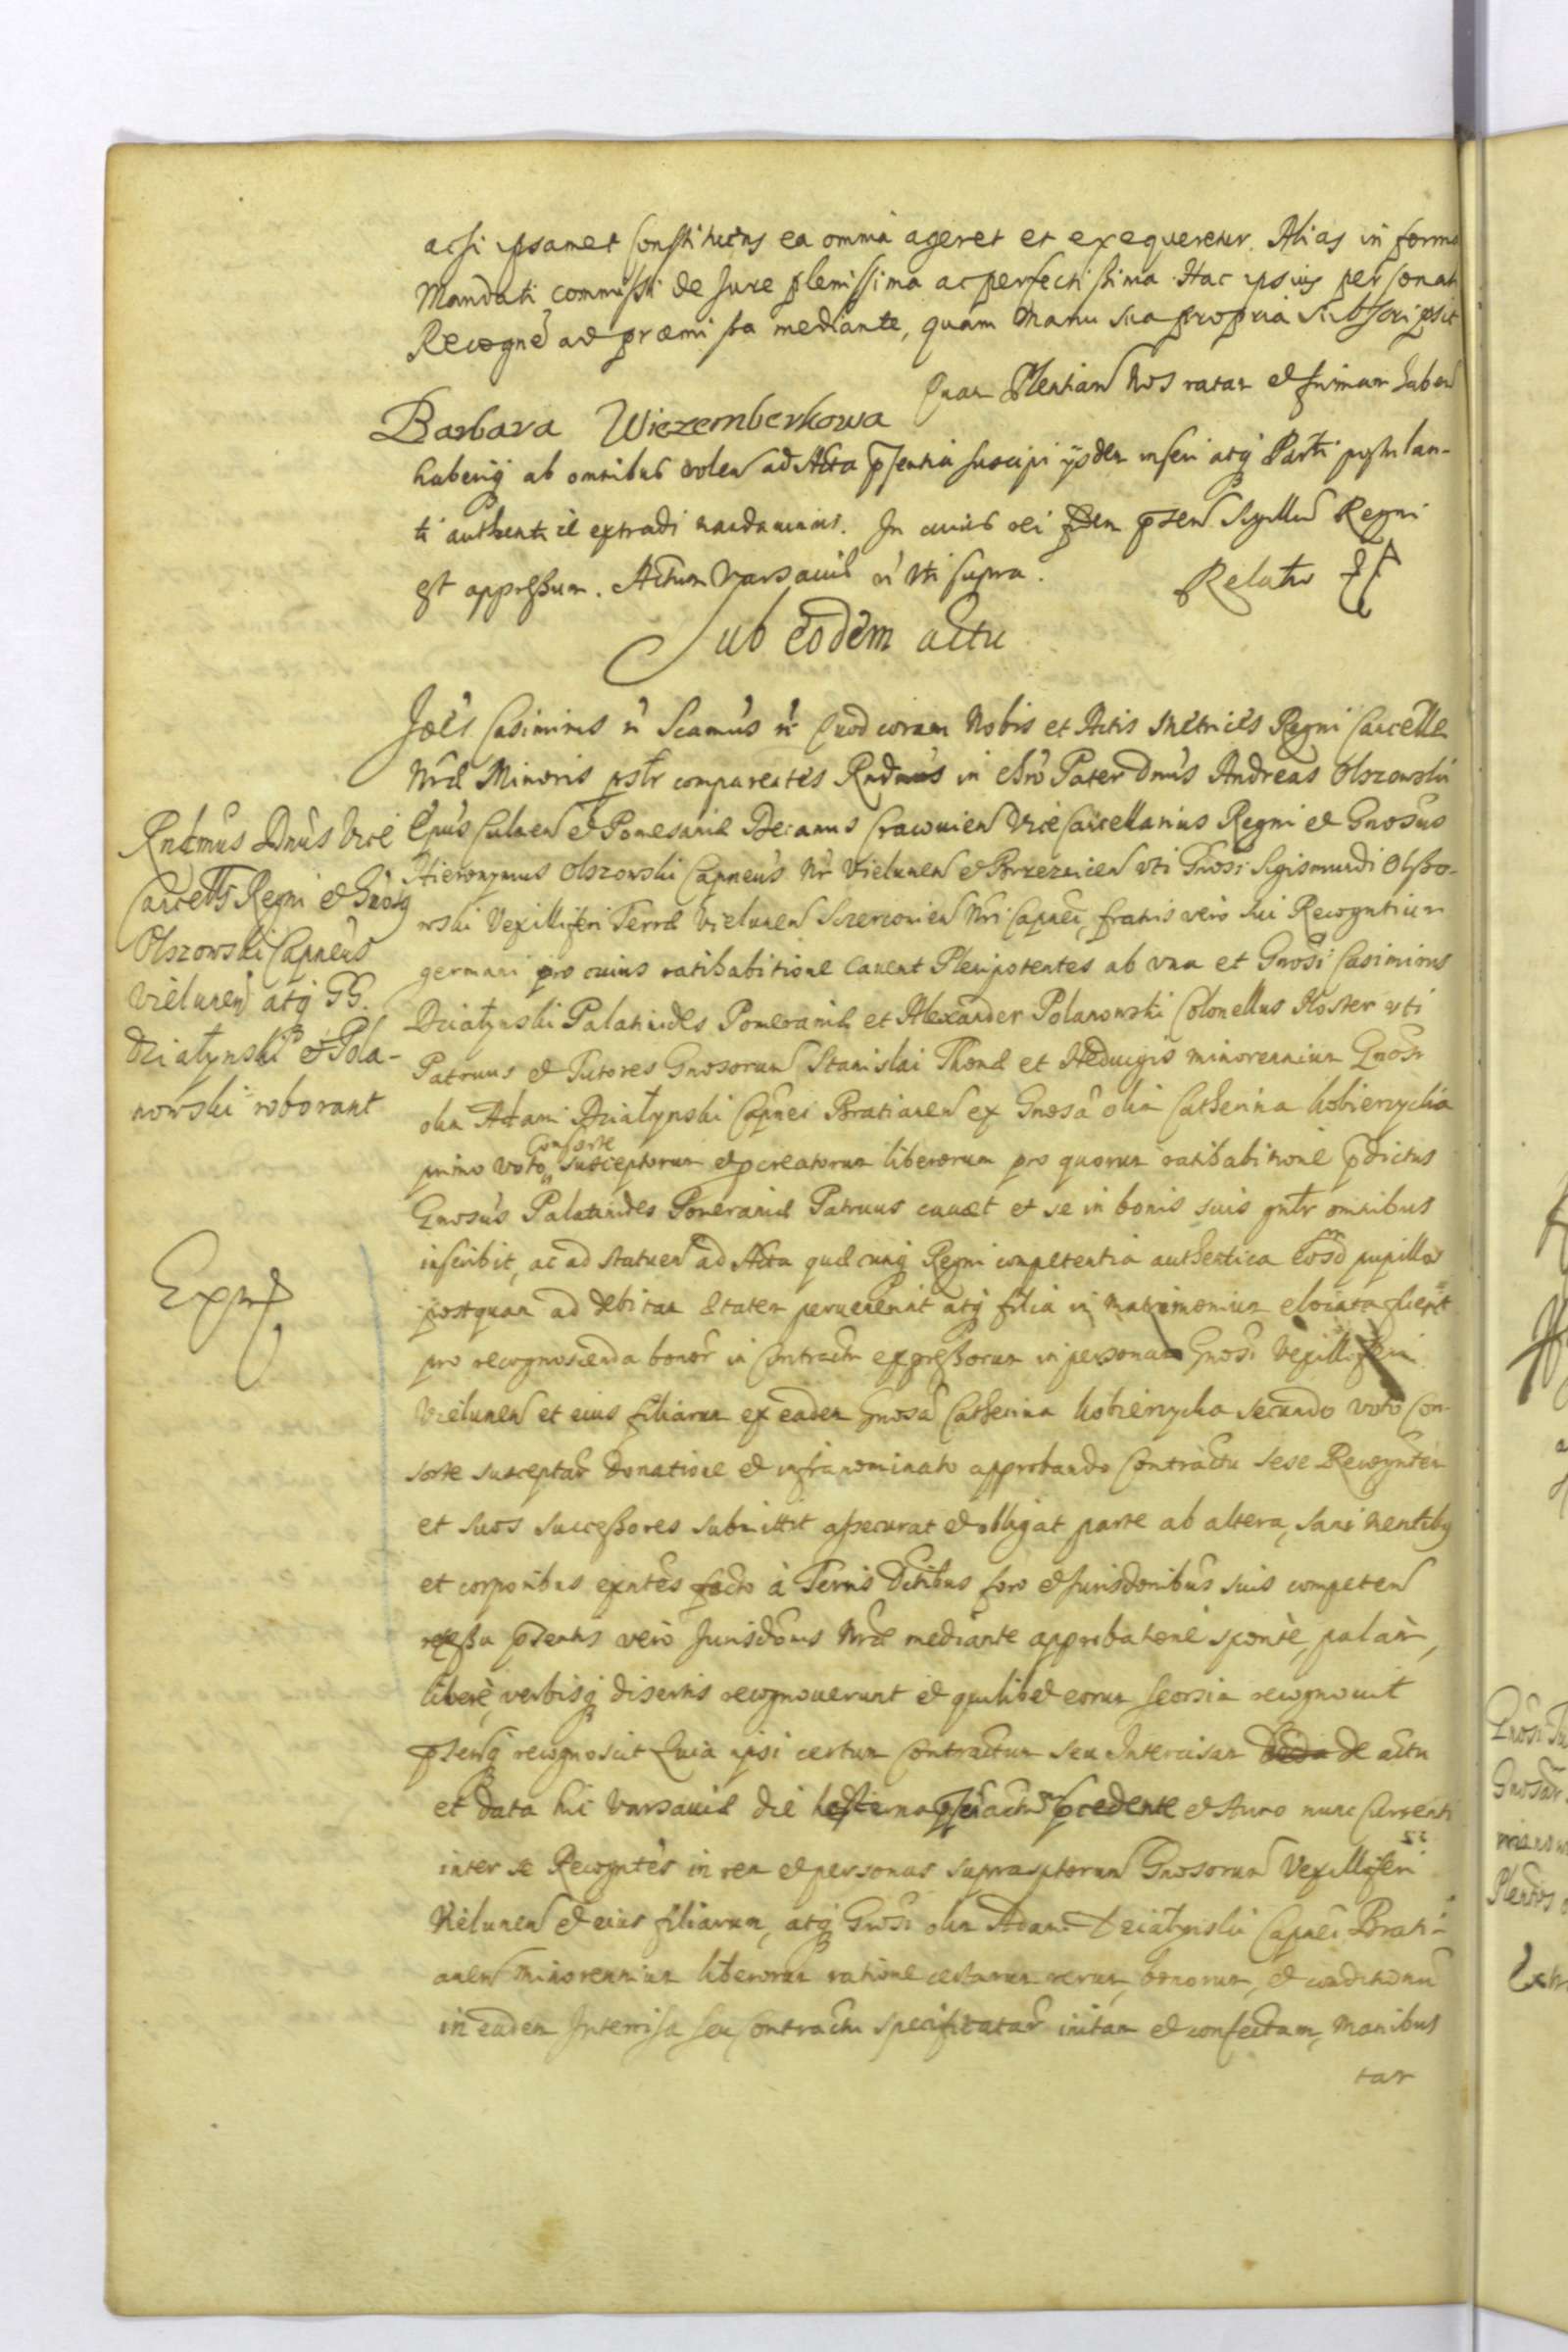 acsi ipsamet Constituens ea omnia ageret et exequeretur. Alias in forma
Mandati commissi de Jure plenissima ac perfectissima. Hac ipsius personali
Recogne ad præmissa mediante, quam Manu sua propria subscripsit
Barbara Wiezemberkowa Quam Plentiam Nos ratam et firmam haben
haberiq ab omnibus volen ad Acta psentia suscipi ijsdem inseri atq Parti postulan-
ti authenticè extradi mandavimus. In cuius rei fidem psen Sigillum Regni
est appressum. Actum Varsaviæ ut supra. Relatio
Sub eodem actu
Joẽs Casimirus Scamus Quod coram Nobis et Actis Metrices Regni Cancelle
Nræ Minoris psltr comparentes Rndmus in chro Pater Dnus Andreas Olszowski
Epus Culmen et Pomesaniæ Decanus Cracovien Vice Cancellarius Regni et Gnosus
Hieronymus Olszowski Capneus Nr Vielunen et Brzeznicen uti Gnosi Sigismundi Olszo-
wski Vexilliferi Terræ Vielunen Szczercovien Nri Capnei, fratris vero sui Recogntium
germani pro cuius ratihabitione cavent Plenipotentes ab vna et Gnosi Casimirus
Działynski Palatinides Pomeraniæ et Alexander Polanowski Colonellus Noster uti
Patruus et Tutores Gnosorum Stanislai Thomæ et Heduigis minorennium Gnosi
olim Adami Działynski Capnei Bratianen ex Gnosa olim Catherina Kobierzycka
primo voto Consorte susceptorum et pcreatorum liberorum pro quorum ratihabitione pdictus
Gnosus Palatinides Pomeraniæ Patruus cavet et se in bonis suis gnlr omnibus
inscribit, ac ad statuen ad Acta quæcunq Regni competentia authentica eosd pupillos
postquam ad debitam ætatem pervenerint atq filia in matrimonium elocata fuerit
pro recognoscenda bonor in Contractu expressorum in personam Gnosi Vexilliferi
Vielunen et eius filiarum ex eadem Gnosa Catherina Kobierzycka secundo voto Con-
sorte susceptar Donatione et infranominato approbando Contractu sese Recognten
et suos successores submittit assecurat et obligat parte ab altera, sani mentibq
et corporibus exntes facto à Terris Dctibus foro et Jurisdonibus suis competen
recessu psentis verò Jurisdonis Nræ mediante approbatione spontè, palam,
liberè, verbisq disertis recognoverunt et quilibet eorum seorsim recognovit
psenq recognoscit Quia ipsi certum Contractum seu Intercisam de actu
et data hic Varsaviæ die hesterna actum pcedente et Anno nunc currenti
inter se Recogntes in rem et personas suprascptorum Gnosorum Vexilliferi
Vielunen et eius filiarum, atq Gnosi olim Adami Działynski Capnei Brati-
anen minorennium liberorum ratione certarum rerum, bonorum, et conditionum
in eadem Intercisa seu Contractu specificatar initam et confectam, manibus
tar
Rndmus Dnus Vice
Cancells Regni et Gnosq
Olszowski Capneus
Vielunen atq GG.
Działynski et Pola-
nowski roborant